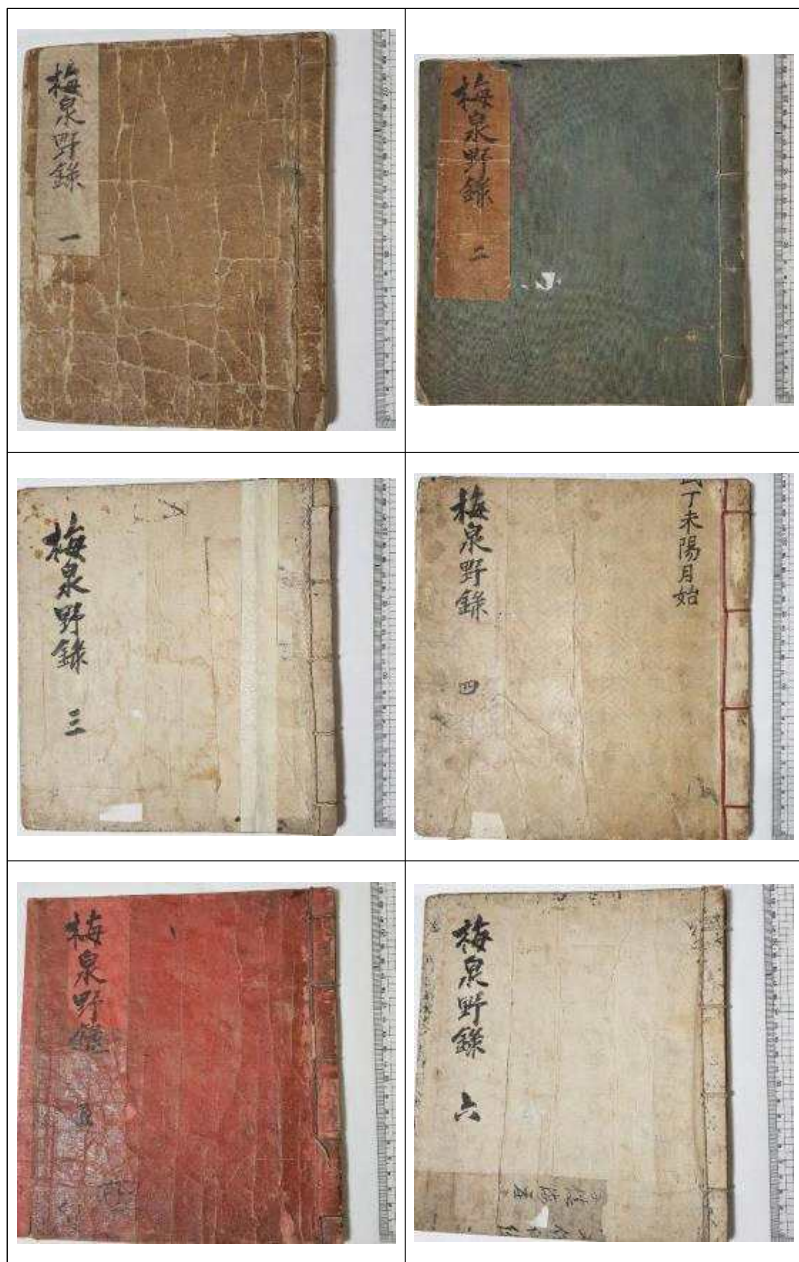 梅泉野錄
一
梅泉野錄
二
梅泉野錄
三
梅泉野錄
四
丁未陽月始
梅泉野錄
五
梅泉野錄
六